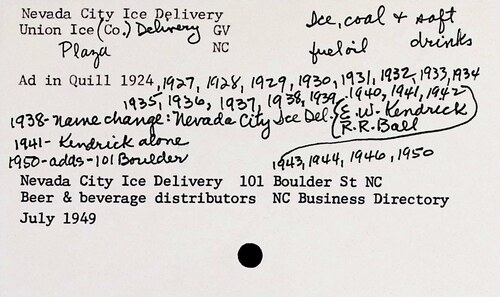 Nevada City Ice Delivery
Union Ice (Co.) Delivery GV
Plaza NC
Ice, coal & soft
fuel oil drinks
Ad in Quill 1924, 1927, 1928, 1929, 1930, 1931, 1932, 1933, 1934
1935, 1936, 1937, 1938, 1939, 1940, 1941, 1942
1938-name change: Nevada City Ice Del. (E. W. Kendrick
R.R. Ball
1941- Kendrick alone
1950-adds-101 Boulder
1943, 1944, 1946, 1950
Nevada City Ice Delivery 101 Boulder St NC
Beer & beverage distributors NC Business Directory
July 1949